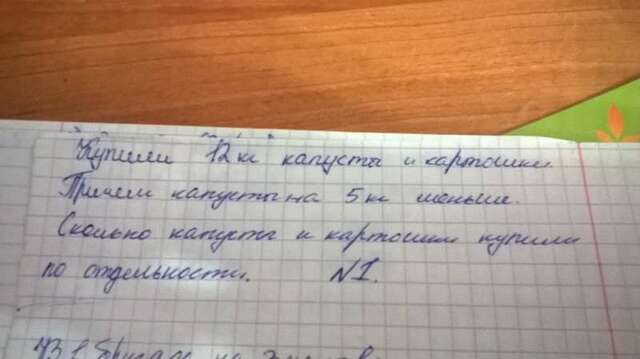 Купили 12 кг капусты и картошки.
Причем капусты на 5 кг меньше.
Сколько капусты и картошки купили
по отдельности. №1.